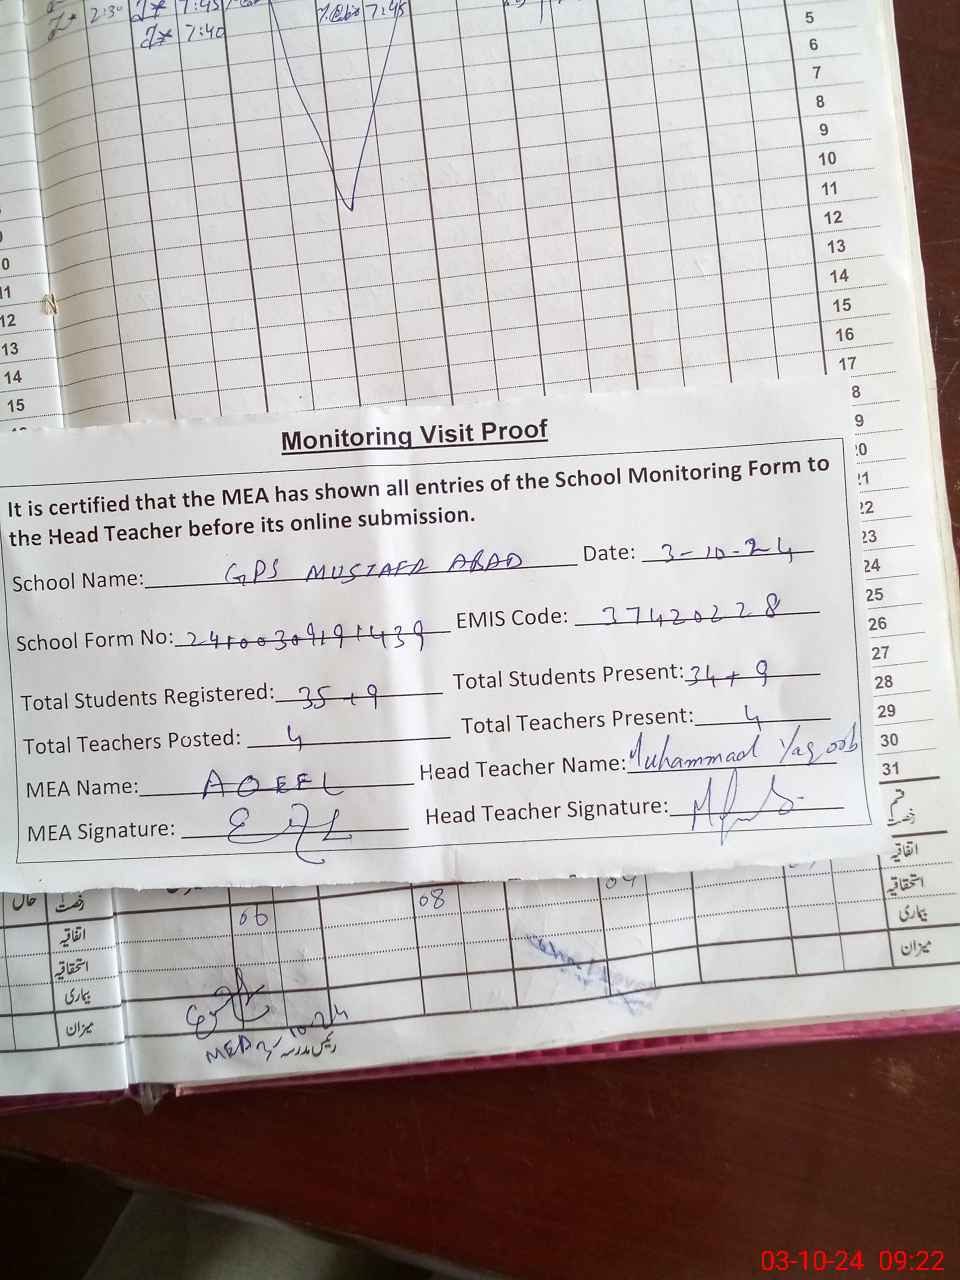 2:30 7:45 7:45
7:40
5
6
7
8
9
10
11
12
13
14
15
16
17
8
9
20
21
22
23
24
25
26
27
28
29
30
31
0
11
12
13
14
15
Monitoring Visit Proof
It is certified that the MEA has shown all entries of the School Monitoring Form to
the Head Teacher before its online submission.
School Name: GPS MUSTAFA ABAD Date: 3-10-24
School Form No: 24100309191439 EMIS Code: 37420228
Total Students Registered: 35+9 Total Students Present: 34+9
Total Teachers Posted: 4 Total Teachers Present: 4
MEA Name: AQEEL Head Teacher Name: Muhammad Yaqoob
MEA Signature: Head Teacher Signature:
رخصت
اتفاقیہ
استحقاقیہ
بیماری
میزان
حال رخصت 06 08 09
اتفاقیہ
استحقاقیہ
بیماری
میزان
MEA 3/10-24 رئیس مدرسہ
03-10-24 09:22